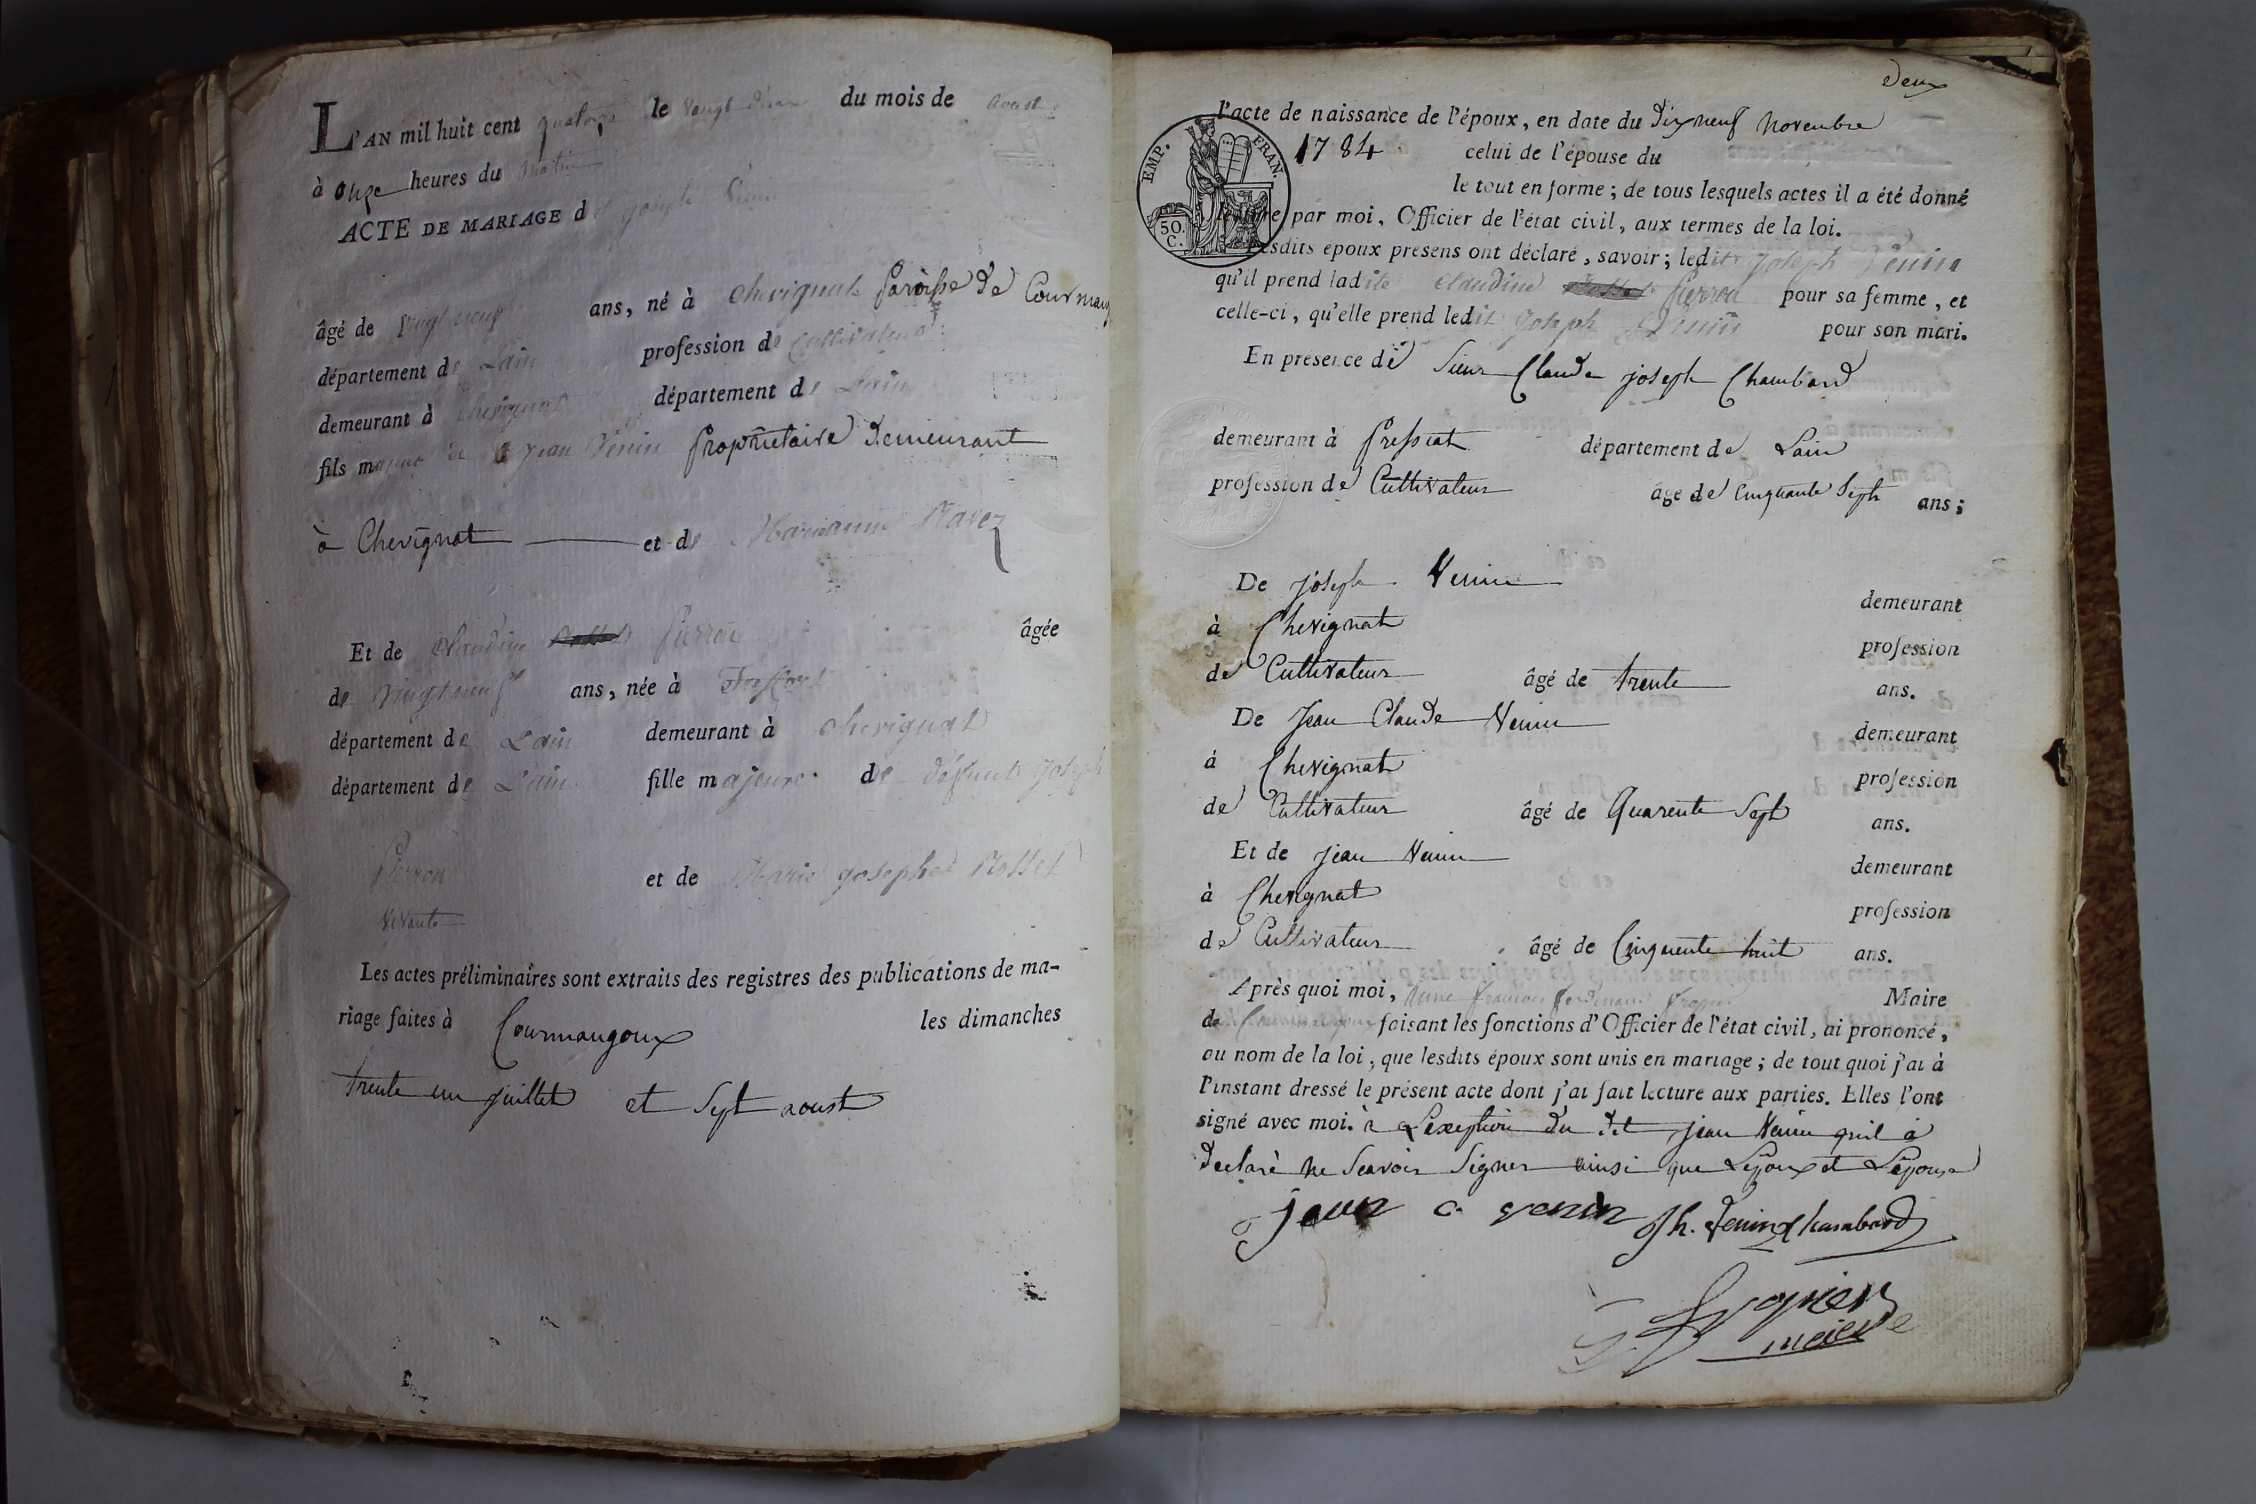 L'AN mil huit cent quatorze le vingt deux du mois de aoust
à onze heures du matin
ACTE DE MARIAGE de joseph Venin
âgé de vingt neuf ans, né à chevignat paroisse de Courmang
département de Lain profession de Cultivateur
demeurant à chevignat département de Lain
fils majeur de jean Venin propriétaire demeurant
à Chevignat et de Marianne Ravez
Et de claudine pierron âgée
de vingt neuf ans, née à
département de L'ain demeurant à chevignat
département de L'ain fille majeure de défunt joseph
Pierron et de Marie josephe Rosset
vivante
Les actes préliminaires sont extraits des registres des publications de ma-
riage faites à Courmangoux les dimanches
trente un juillet et sept aoust
deux
l'acte de naissance de l'époux, en date du dix neuf novembre
1784 celui de l'épouse du
le tout en forme ; de tous lesquels actes il a été donné
lecture par moi, Officier de l'état civil, aux termes de la loi.
EMP. FRAN.
50. C.
Lesdits époux présens ont déclaré, savoir ; ledit joseph Venin
qu'il prend ladite claudine pierron pour sa femme, et
celle-ci, qu'elle prend ledit joseph Venin pour son mari.
En présence de Sieur Claude joseph Chambard
demeurant à pressiat département de Lain
profession de Cultivateur âgé de cinquante sept ans ;
De joseph Venin demeurant
à Chevignat profession
de Cultivateur âgé de trente ans.
De Jean Claude Venin demeurant
à Chevignat profession
de Cultivateur âgé de Quarente sept ans.
Et de jean Venin demeurant
à Chevignat profession
de Cultivateur âgé de Cinquente huit ans.
Après quoi moi, françois ferdinand Maire
de Courmangoux faisant les fonctions d'Officier de l'état civil, ai prononcé,
au nom de la loi, que lesdits époux sont unis en mariage ; de tout quoi j'ai à
l'instant dressé le présent acte dont j'ai fait lecture aux parties. Elles l'ont
signé avec moi. à Lexeption du dit jean Venin quil a
declaré ne scavoir signer ainsi que Lepoux et Lepouse
jean c. venin jh. venin chambard